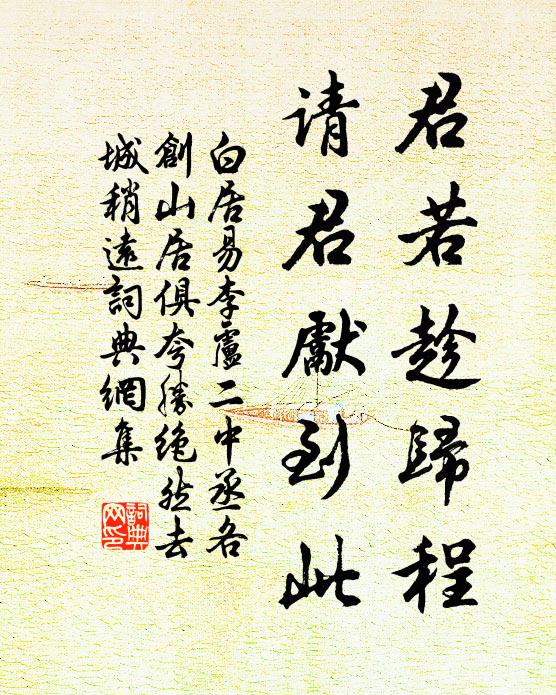 君若趁歸程
请君獻到此
白居易李盧二中丞各
創山居俱夸勝絕然去
城稍遠詞典網集
詞典网印